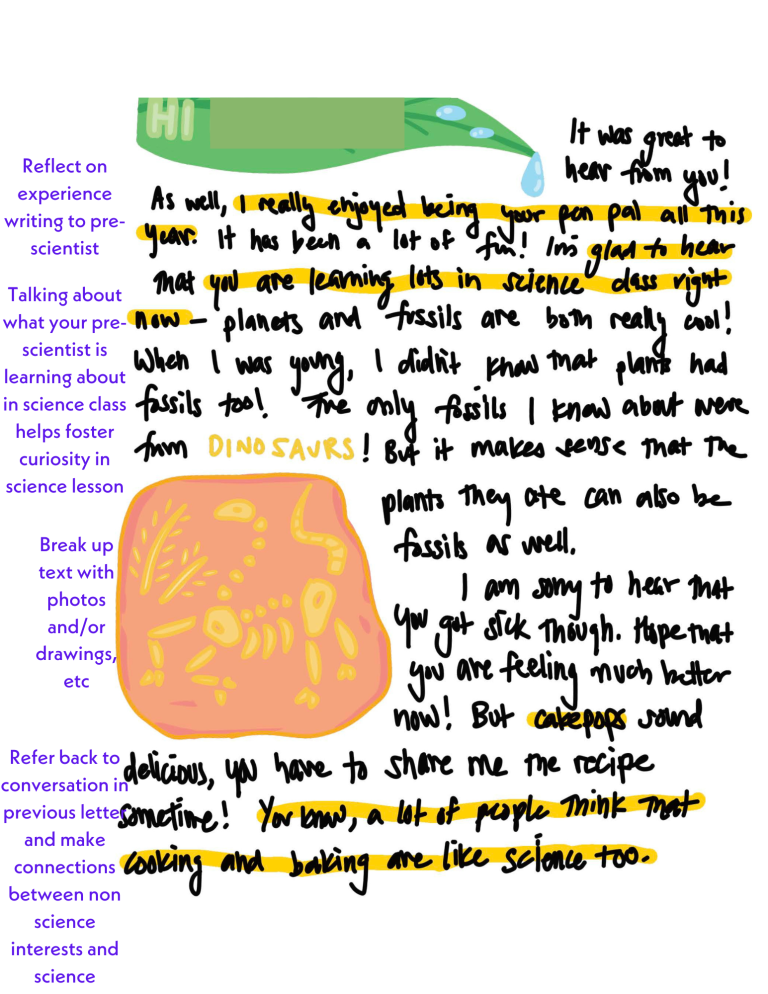 HI
It was great to
hear from you!
As well, I really enjoyed being your pen pal all this
year. It has been a lot of fun! Im glad to hear
that you are learning lots in science class right
now – planets and fossils are both really cool!
When I was young, I didn't know that plants had
fossils too! The only fossils I know about were
from DINOSAURS! But it makes sense that the
plants they ate can also be
fossils as well.
I am sorry to hear that
you got sick though. Hope that
you are feeling much better
now! But cakepops sound
delicious, you have to share me the recipe
sometime! You know, a lot of people think that
cooking and baking are like science too.
Reflect on
experience
writing to pre-
scientist
Talking about
what your pre-
scientist is
learning about
in science class
helps foster
curiosity in
science lesson
Break up
text with
photos
and/or
drawings,
etc
Refer back to
conversation in
previous letter
and make
connections
between non
science
interests and
science